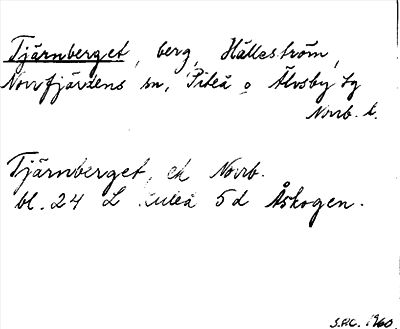 Tjärnberget, berg, Hälleström,
Norrfjärdens sn, Piteå o Älvsby tg
Norrb. l.
Tjärnberget, ek Norrb.
bl. 24 L Luleå 5d Åskogen.
1960